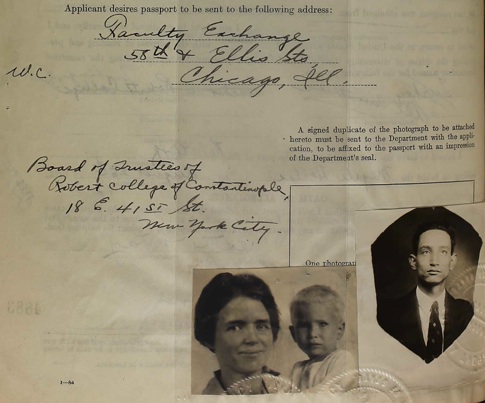 Applicant desires passport to be sent to the following address:
Faculty Exchange
58th & Ellis Sts.
Chicago, Ill.
W.C.
A signed duplicate of the photograph to be attached
hereto must be sent to the Department with the appli-
cation, to be affixed to the passport with an impression
of the Department's seal.
Board of Trustees of
Robert College of Constantinople,
18 E. 41st St.
New York City.
One photograp
1—64